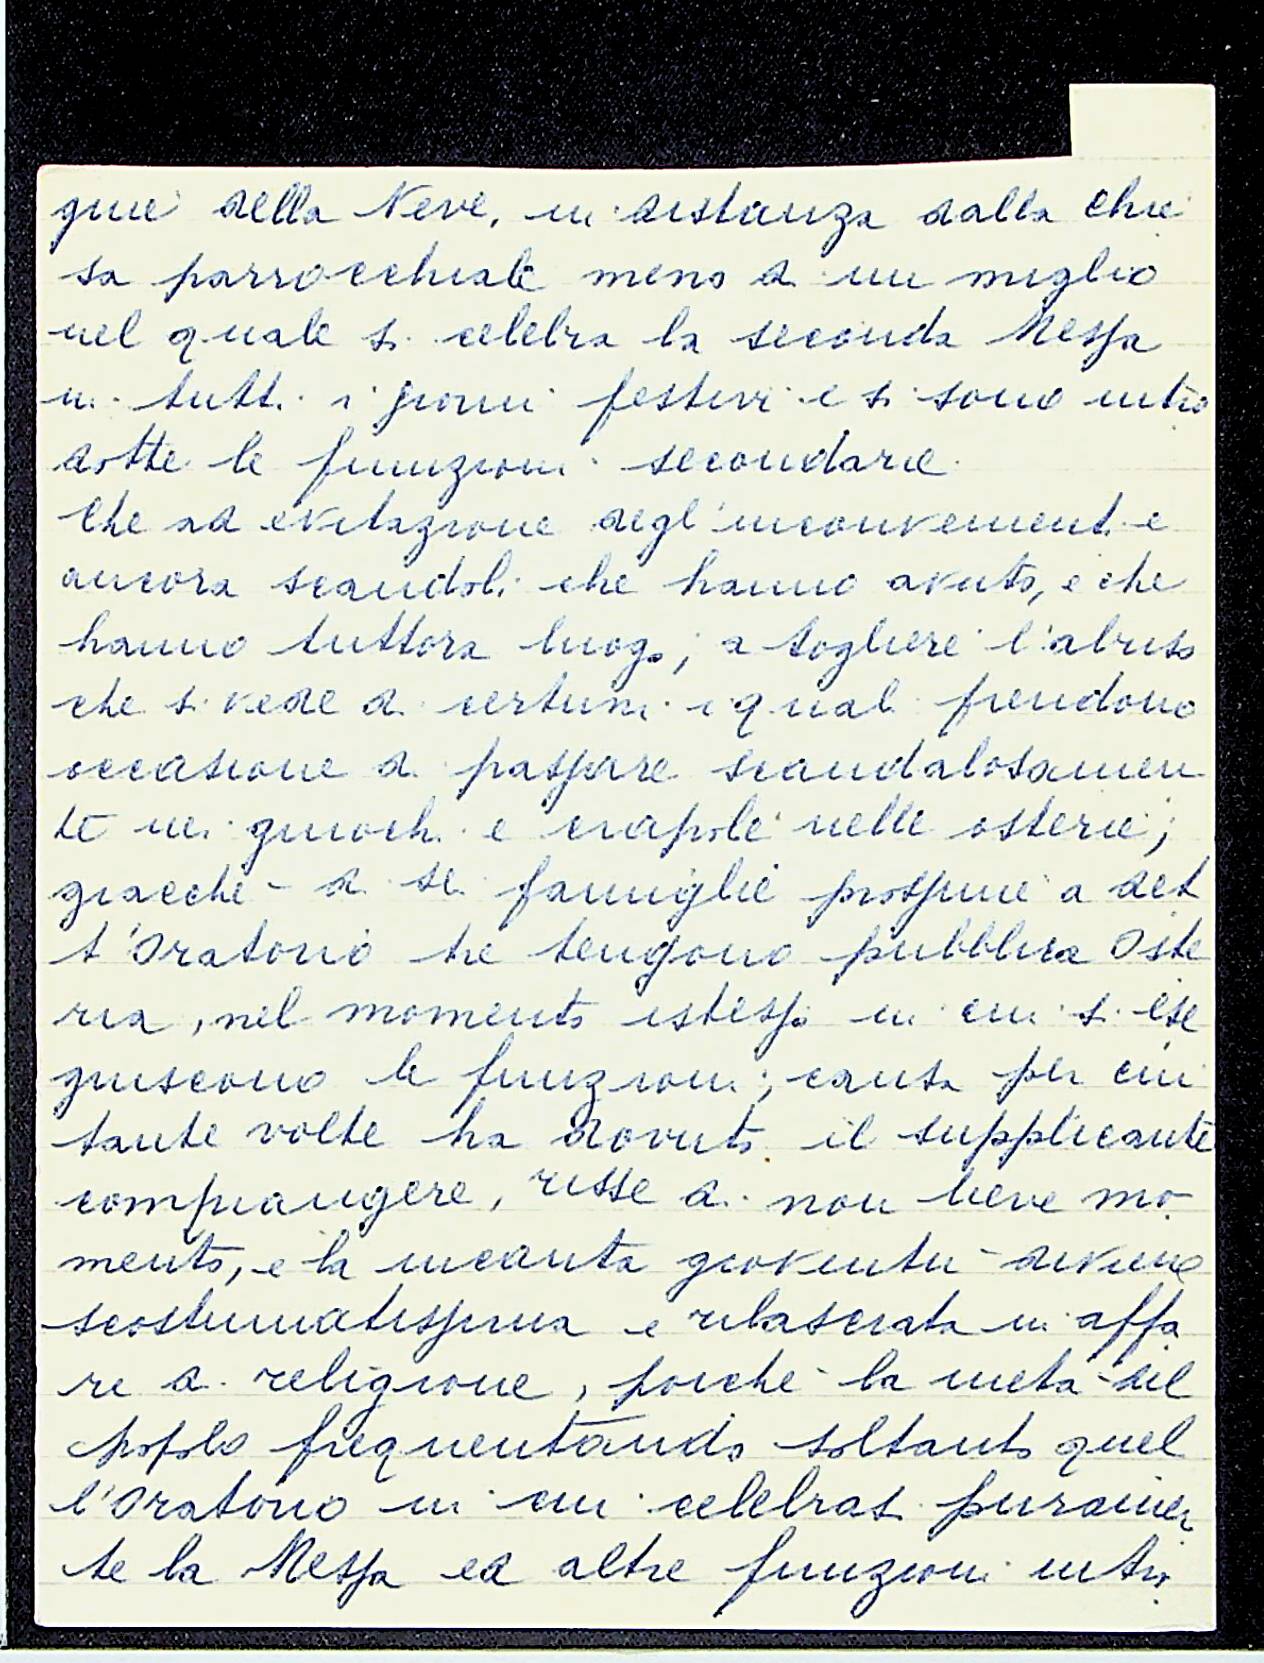 gine della Neve, in distanza dalla Chie
sa parrocchiale meno di un miglio
nel quale si celebra la seconda Messa
in tutti i giorni festivi e si sono intro
dotte le funzioni secondarie.
Che ad evitazione degl'inconvenienti e
ancora scandoli che hanno avuto, e che
hanno tuttora luogo; a togliere l'abuso
che si vede di certuni i quali prendono
occasione di passare scandalosamen
te nei giuochi e crapole nelle osterie;
giacché di sei famiglie prossime a det
t'Oratorio tre tengono pubblica Oste
ria, nel momento istesso in cui si ese
guiscono le funzioni; causa per cui
tante volte ha dovuto il supplicante
compiangere, risse di non lieve mo
mento, e la incauta gioventù diviene
scostumatissima e rilasciata in affa
re di religione, poiché la metà del
popolo frequentando soltanto quel
l'Oratorio in cui celebrasi puramen
te la Messa ed altre funzioni intro